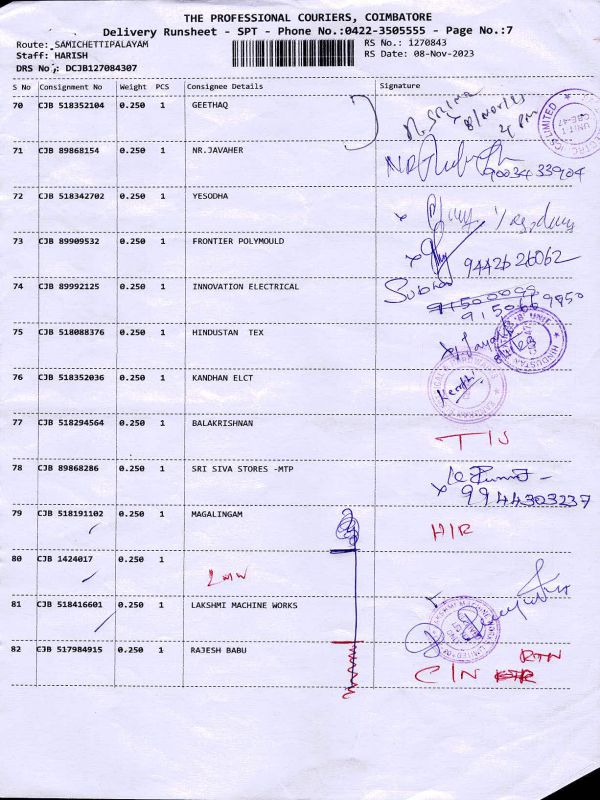 THE PROFESSIONAL COURIERS, COIMBATORE
Delivery Runsheet - SPT - Phone No.:0422-3505555 - Page No.:7
Route: SAMICHETTIPALAYAM RS No.: 1270843
Staff: HARISH RS Date: 08-Nov-2023
DRS No.: DCJB127084307
S No Consignment No Weight PCS Consignee Details Signature
70 CJB 518352104 0.250 1 GEETHAQ
4 PM
71 CJB 89868154 0.250 1 NR.JAVAHER
9003433904
72 CJB 518342702 0.250 1 YESODHA
73 CJB 89909532 0.250 1 FRONTIER POLYMOULD
9442626062
74 CJB 89992125 0.250 1 INNOVATION ELECTRICAL
75 CJB 518088376 1 HINDUSTAN TEX
76 CJB 518352036 0.250 1 KANDHAN ELCT
77 CJB 518294564 0.250 1 BALAKRISHNAN
78 CJB 89868286 0.250 1 SRI SIVA STORES -MTP
9944303237
79 CJB 518191102 0.250 1 MAGALINGAM H/R
80 CJB 1424017 0.250 1 LMW
81 CJB 518416601 0.250 1 LAKSHMI MACHINE WORKS
82 CJB 517984915 0.250 1 RAJESH BABU RTN
C/N